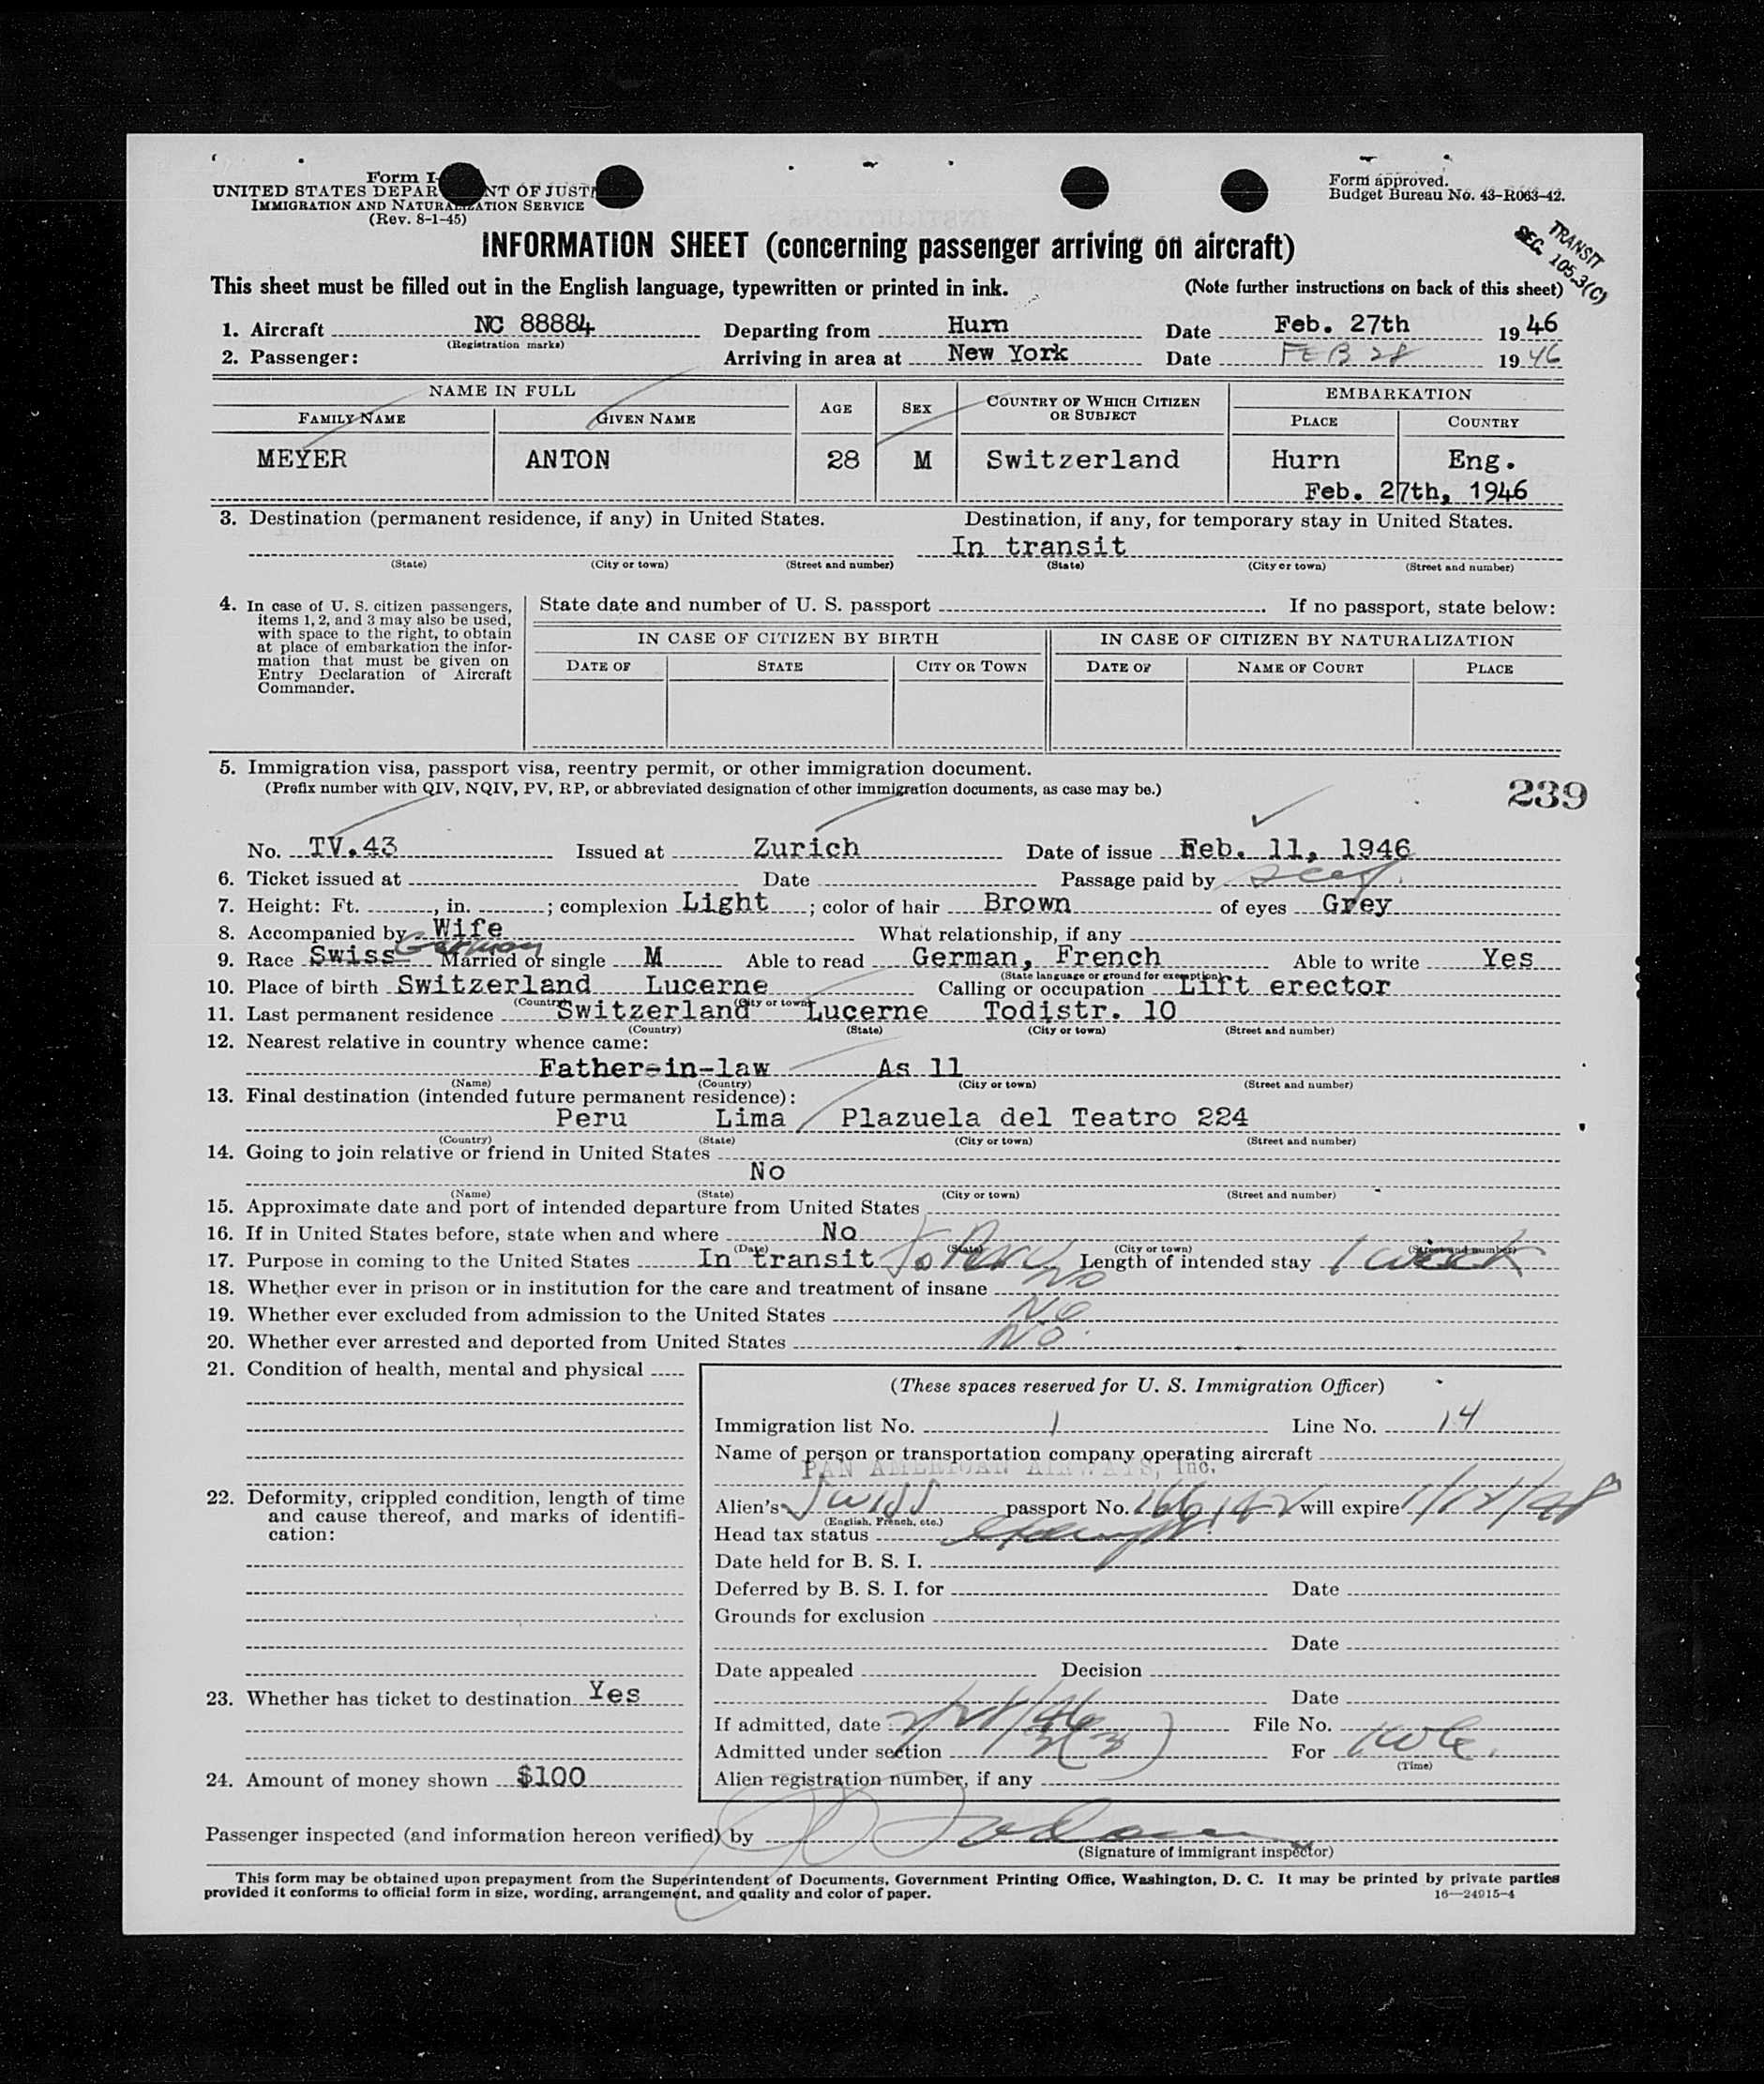 Form I-
UNITED STATES DEPAR NT OF JUSTI
IMMIGRATION AND NATURALIZATION SERVICE
(Rev. 8-1-45)
Form approved.
Budget Bureau No. 43-R063-42.
TRANSIT
SEC. 105.3(C)
INFORMATION SHEET (concerning passenger arriving on aircraft)
This sheet must be filled out in the English language, typewritten or printed in ink. (Note further instructions on back of this sheet)
1. Aircraft NC 88884 Departing from Hurn Date Feb. 27th 1946
(Registration marks)
2. Passenger: Arriving in area at New York Date FEB 28 1946
NAME IN FULL AGE SEX COUNTRY OF WHICH CITIZEN OR SUBJECT EMBARKATION
FAMILY NAME GIVEN NAME PLACE COUNTRY
MEYER ANTON 28 M Switzerland Hurn Eng.
Feb. 27th, 1946
3. Destination (permanent residence, if any) in United States. Destination, if any, for temporary stay in United States.
In transit
(State) (City or town) (Street and number) (State) (City or town) (Street and number)
4. In case of U. S. citizen passengers, items 1, 2, and 3 may also be used, with space to the right, to obtain at place of embarkation the information that must be given on Entry Declaration of Aircraft Commander.
State date and number of U. S. passport . If no passport, state below:
IN CASE OF CITIZEN BY BIRTH IN CASE OF CITIZEN BY NATURALIZATION
DATE OF STATE CITY OR TOWN DATE OF NAME OF COURT PLACE
5. Immigration visa, passport visa, reentry permit, or other immigration document.
(Prefix number with QIV, NQIV, PV, RP, or abbreviated designation of other immigration documents, as case may be.)
239
No. TV.43 Issued at Zurich Date of issue Feb. 11, 1946
6. Ticket issued at Date Passage paid by self
7. Height: Ft. , in. ; complexion Light ; color of hair Brown of eyes Grey
8. Accompanied by Wife What relationship, if any
9. Race Swiss German Married or single M Able to read German, French Able to write Yes
(State language or ground for exemption)
10. Place of birth Switzerland Lucerne Calling or occupation Lift erector
(Country) (City or town)
11. Last permanent residence Switzerland Lucerne Todistr. 10
(Country) (State) (City or town) (Street and number)
12. Nearest relative in country whence came:
Father-in-law As 11
(Name) (Country) (City or town) (Street and number)
13. Final destination (intended future permanent residence):
Peru Lima Plazuela del Teatro 224
(Country) (State) (City or town) (Street and number)
14. Going to join relative or friend in United States
No
(Name) (State) (City or town) (Street and number)
15. Approximate date and port of intended departure from United States
16. If in United States before, state when and where No
(Date) (State) (City or town) (Street and number)
17. Purpose in coming to the United States In transit to Peru Length of intended stay 1 week
18. Whether ever in prison or in institution for the care and treatment of insane No
19. Whether ever excluded from admission to the United States No
20. Whether ever arrested and deported from United States No.
21. Condition of health, mental and physical
(These spaces reserved for U. S. Immigration Officer)
Immigration list No. 1 Line No. 14
Name of person or transportation company operating aircraft
PAN AMERICAN AIRWAYS, Inc.
22. Deformity, crippled condition, length of time and cause thereof, and marks of identification:
Alien's Swiss passport No. will expire 1/12/48
(English, French, etc.)
Head tax status exempt
Date held for B. S. I.
Deferred by B. S. I. for Date
Grounds for exclusion
Date
Date appealed Decision
23. Whether has ticket to destination Yes
Date
If admitted, date 2/28/46 File No.
Admitted under section 3(3) For 1 wk.
(Time)
24. Amount of money shown $100
Alien registration number, if any
Passenger inspected (and information hereon verified) by
(Signature of immigrant inspector)
This form may be obtained upon prepayment from the Superintendent of Documents, Government Printing Office, Washington, D. C. It may be printed by private parties
provided it conforms to official form in size, wording, arrangement, and quality and color of paper.
16—24915-4